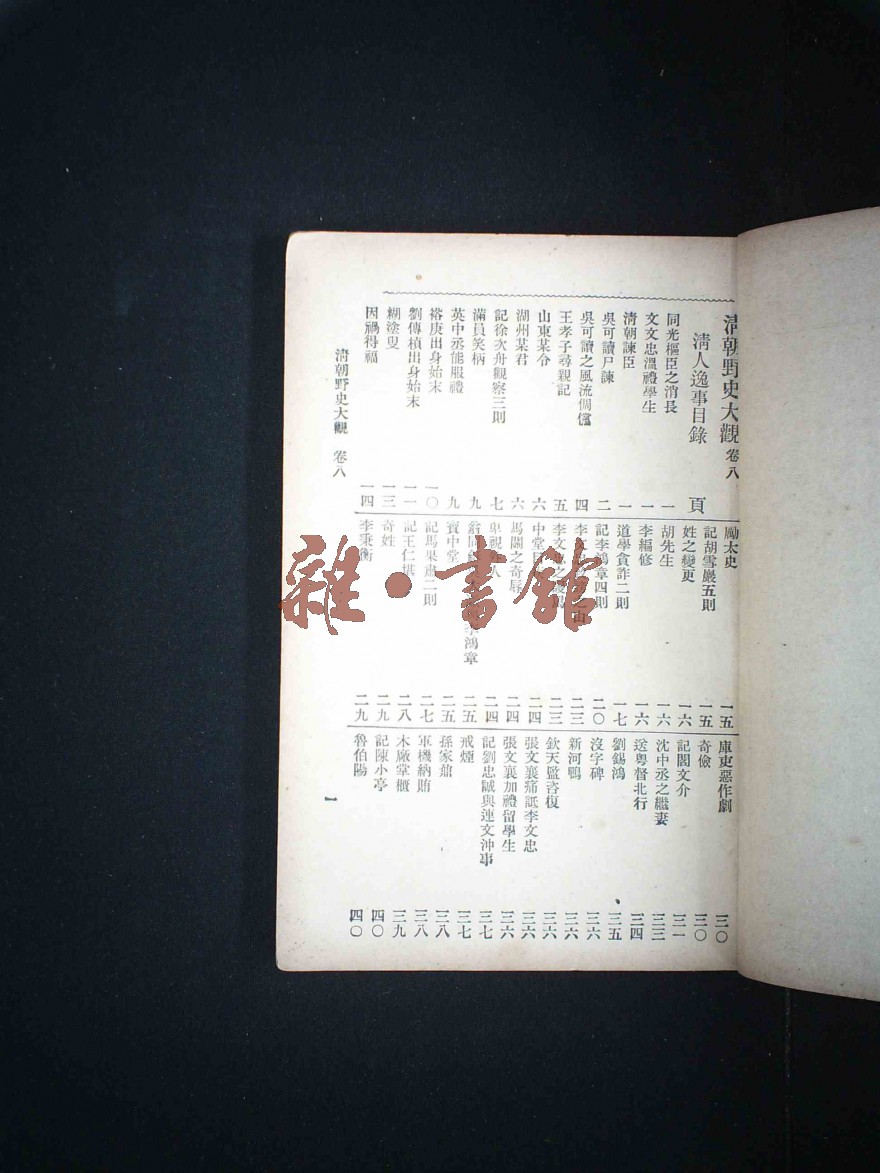 清朝野史大觀 卷八
清人逸事目錄 頁
同光樞臣之消長 一
文文忠溫禮學生 一
清朝諫臣 一
吳可讀尸諫 二
吳可讀之風流倜儻 四
王孝子尋親記 五
山東某令 六
湖州某君 六
記徐次舟觀察三則 七
滿員笑柄 九
英中丞能服禮 九
裕庚出身始末 一〇
劉傳楨出身始末 一一
糊塗叟 一三
因禍得福 一四
勵太史 一五
記胡雪巖五則 一五
姓之變更 一六
胡先生 一六
李編修 一六
道學貪詐二則 一七
記李鴻章四則 二〇
李 之由 二三
李文 之 二三
中堂 二四
馬關之奇辱 二四
卑視 人 二四
翁同 李鴻章 二五
寶中堂 二五
記馬果肅二則 二七
記王仁堪 二八
奇姓 二九
李秉衡 二九
庫吏惡作劇 三〇
奇儉 三〇
記閻文介 三一
沈中丞之繼妻 三三
送粵督北行 三四
劉錫鴻 三五
沒字碑 三六
新河鴨 三六
欽天監咨復 三六
張文襄痛詆李文忠 三六
張文襄加禮留學生 三六
記劉忠誠與連文沖事 三七
戒煙 三七
孫家鼐 三八
軍機納賄 三八
木廠掌櫃 三九
記陳小亭 四〇
魯伯陽 四〇
清朝野史大觀 卷八
一
雜·書館